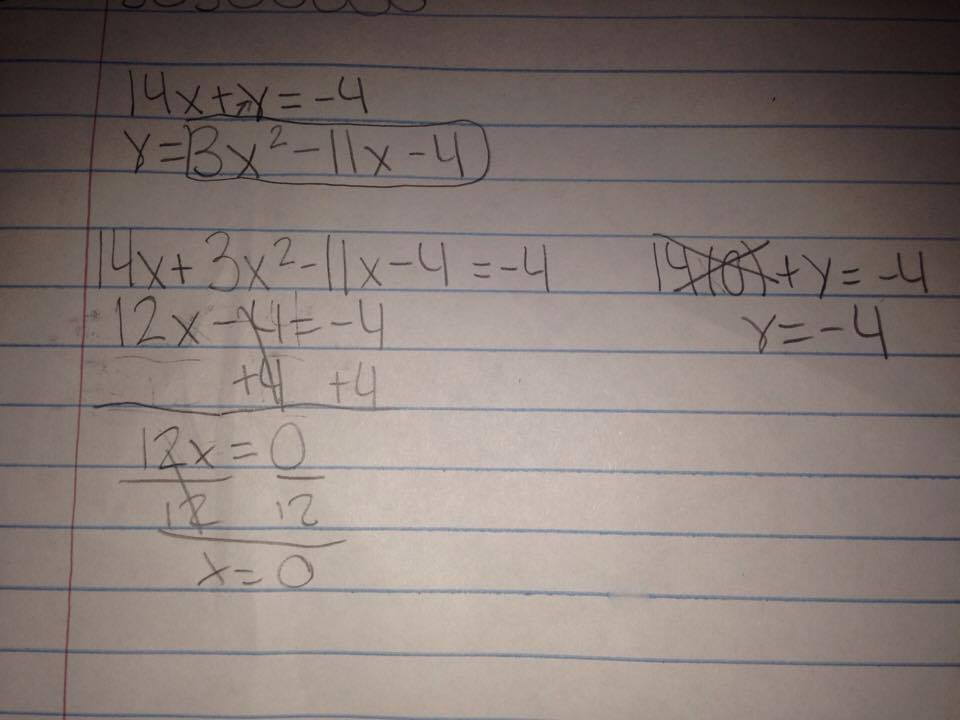 14x+y=-4
y=3x²-11x-4
14x+3x²-11x-4=-4
12x-4=-4
+4 +4
12x=0
12 12
x=0
14(0)+y=-4
y=-4